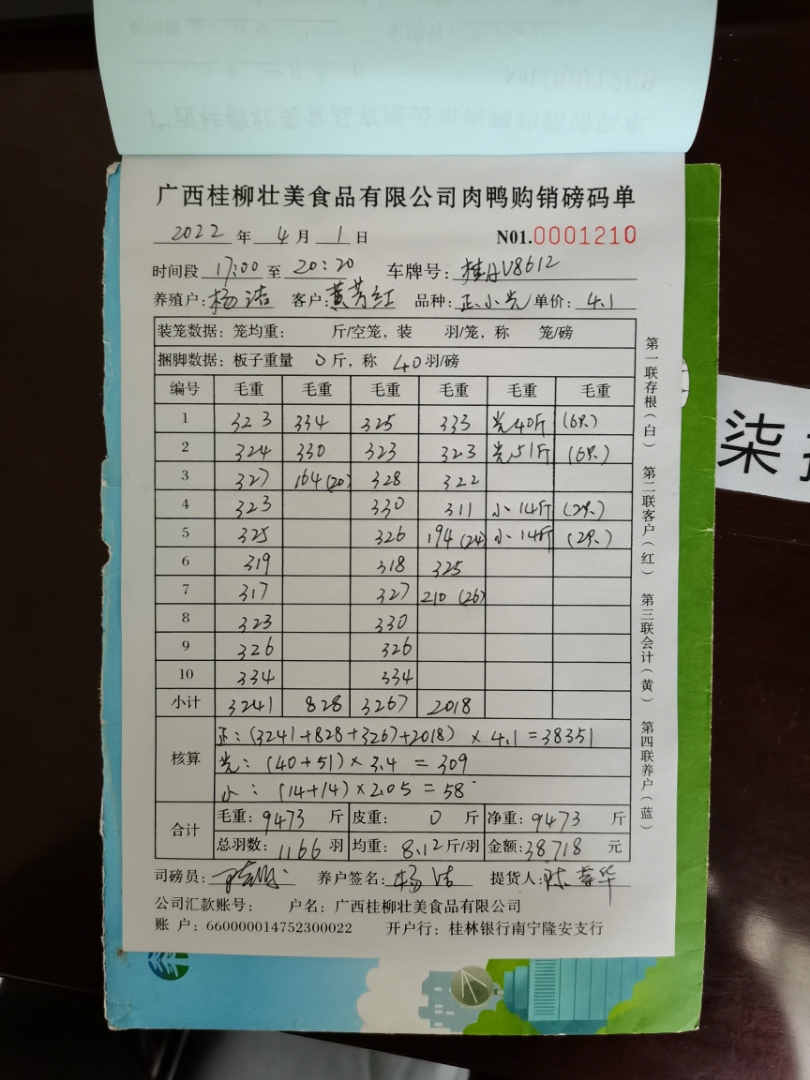 广西桂柳壮美食品有限公司肉鸭购销磅码单
2022 年 4 月 1 日 N01.0001210
时间段 17:00 至 20:20 车牌号: 桂AV8612
养殖户: 杨洁 客户: 黄芳红 品种: 正.小.光 单价: 4.1
装笼数据: 笼均重: 斤/空笼, 装 羽/笼, 称 笼/磅
捆脚数据: 板子重量 0 斤, 称 40 羽/磅
编号 毛重 毛重 毛重 毛重 毛重 毛重
1 323 334 325 333 光40斤 (6只.)
2 324 330 323 323 光51斤 (6只.)
3 327 164(20) 328 322
4 323 330 311 小14斤 (2只.)
5 325 326 194(24) 小14斤 (2只.)
6 319 318 325
7 317 327 210(26)
8 323 330
9 326 326
10 334 334
小计 3241 828 3267 2018
核算
正: (3241+828+3267+2018) × 4.1 = 38351
光: (40+51)×3.4 = 309
小: (14+14)×2.05 = 58
合计
毛重: 9473 斤 皮重: 0 斤 净重: 9473 斤
总羽数: 1166 羽 均重: 8.12 斤/羽 金额: 38718 元
司磅员: 养户签名: 杨洁 提货人: 陈 华
公司汇款账号: 户名: 广西桂柳壮美食品有限公司
账 户: 660000014752300022 开户行: 桂林银行南宁隆安支行
第一联存根(白) 第二联客户(红) 第三联会计(黄) 第四联养户(蓝)
柒